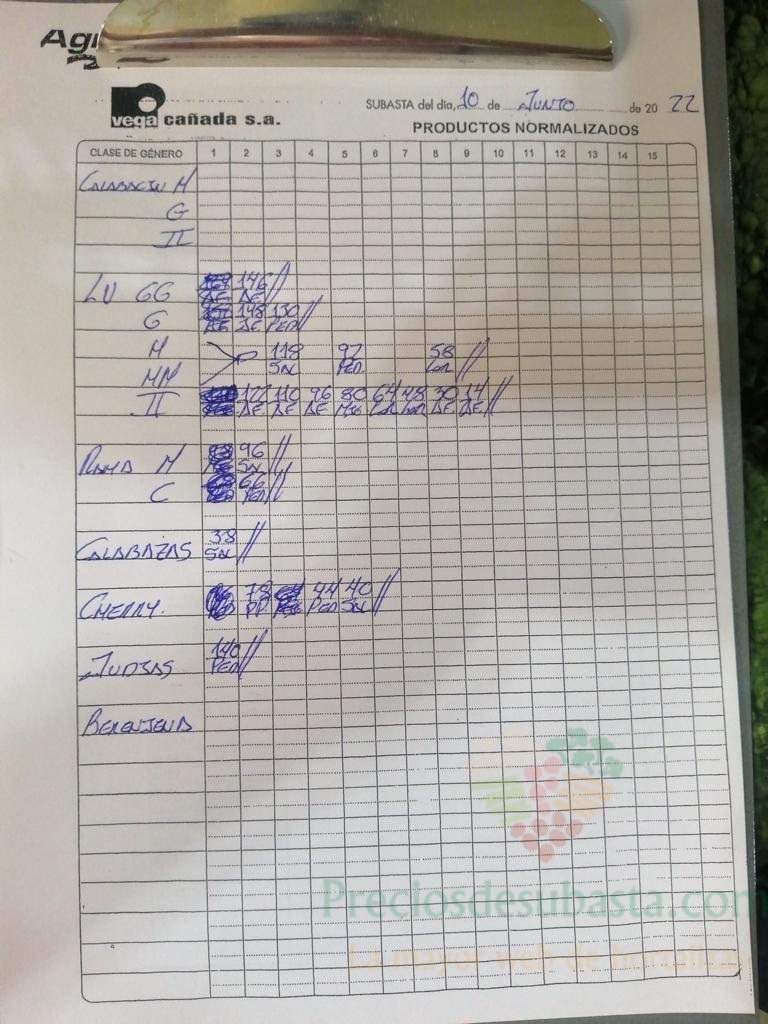 Agr
vega cañada s.a.
SUBASTA del día, 10 de JUNIO de 20 22
PRODUCTOS NORMALIZADOS
CLASE DE GÉNERO 1 2 3 4 5 6 7 8 9 10 11 12 13 14 15
CALABACIN M
G
II
LU GG 146 //
DE
G 148 130 //
DE PED
M 118 92 58 //
SN PED.
MM
II 122 110 96 80 64 48 30 14 //
DE DE DE DE DE
RAMA M 96 //
SN
C 66 //
PED
CALABAZAS 38 //
SN
CHERRY. 78 44 40 //
PED SN
JUDIAS 140 //
PED
BERENJENA
Preciosdesubasta.com
La mayor web de hortalizas